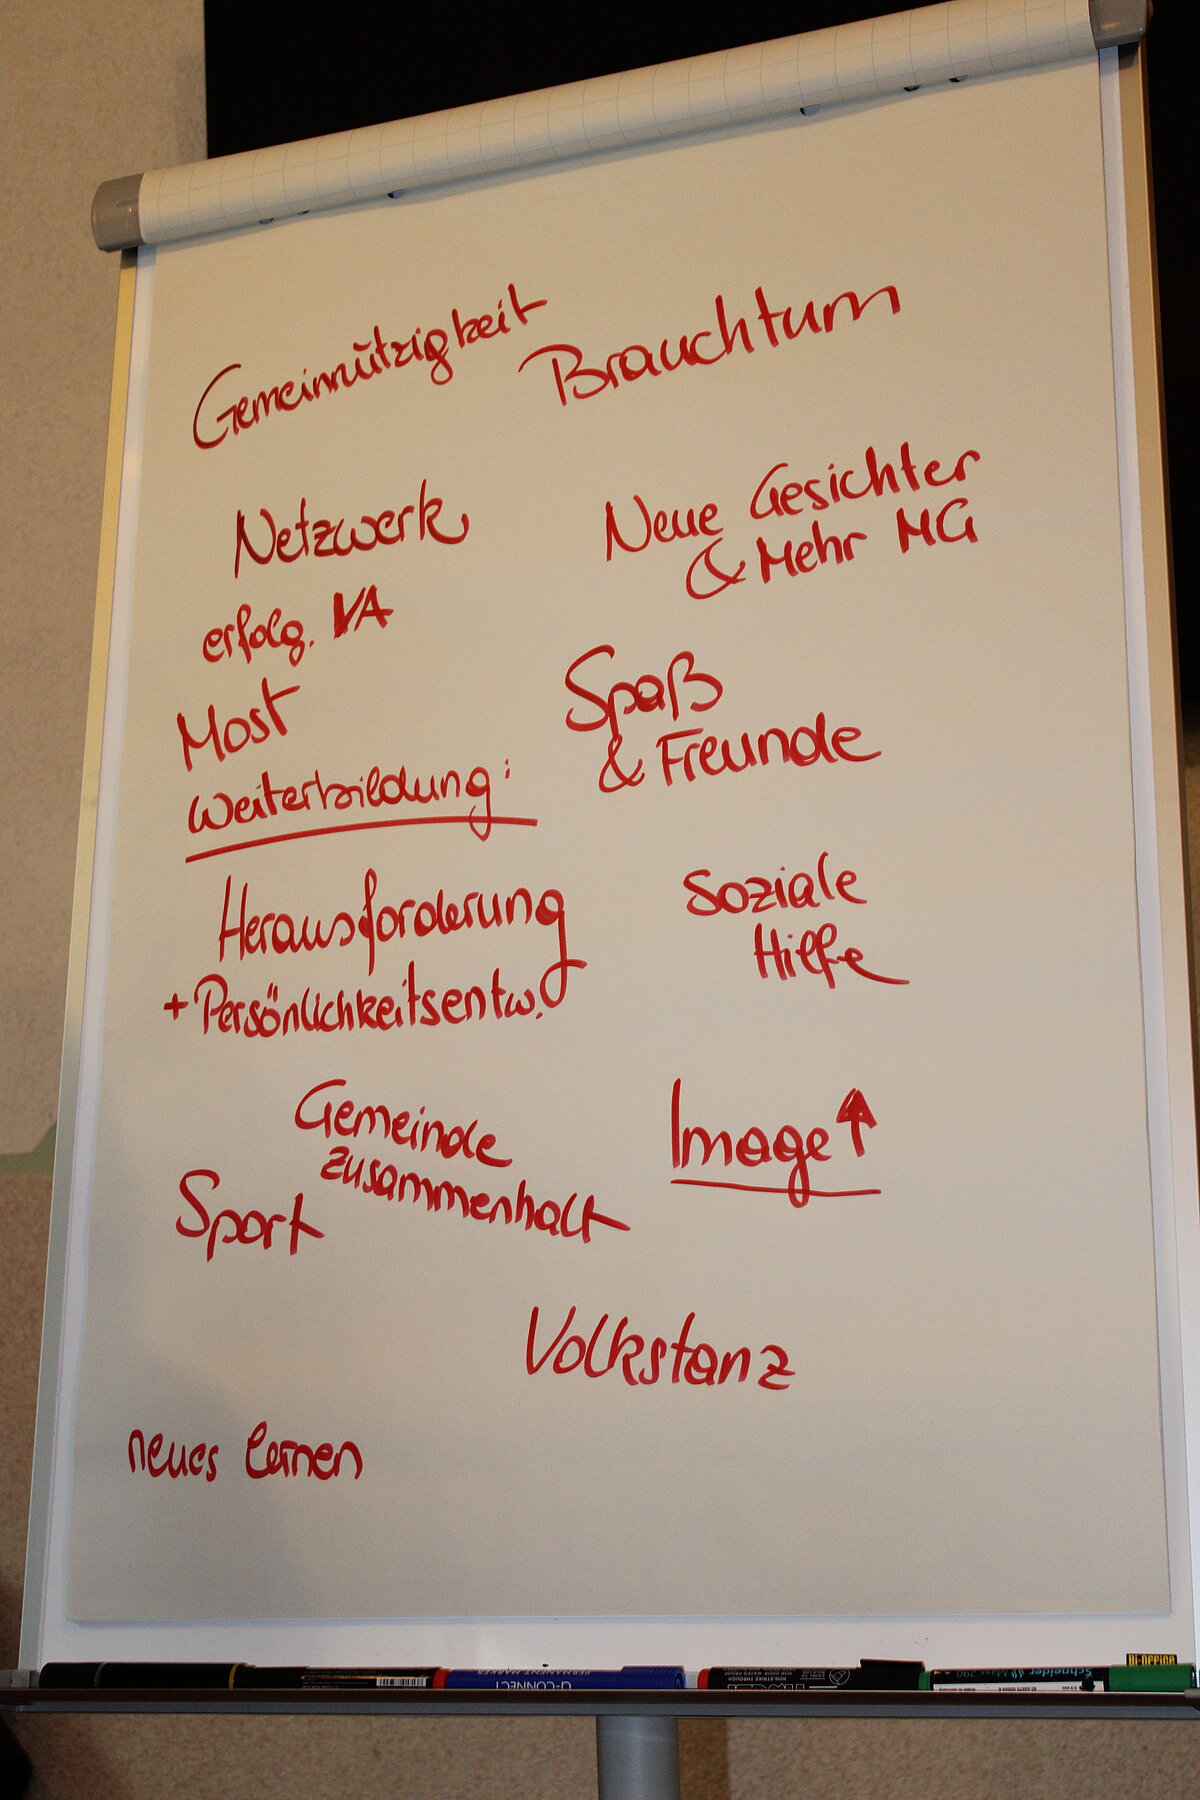 Gemeinnützigkeit
Brauchtum
Netzwerk
Neue Gesichter
& Mehr MG
erfolg. VA
Most
Spaß
& Freunde
Weiterbildung:
Herausforderung
+ Persönlichkeitsentw.
soziale
Hilfe
Gemeinde
zusammenhalt
Image ↑
Sport
Volkstanz
neues lernen
PERMANENT MARKER
Q-CONNECT
Schneider Maxx 290
Bi-OFFICE